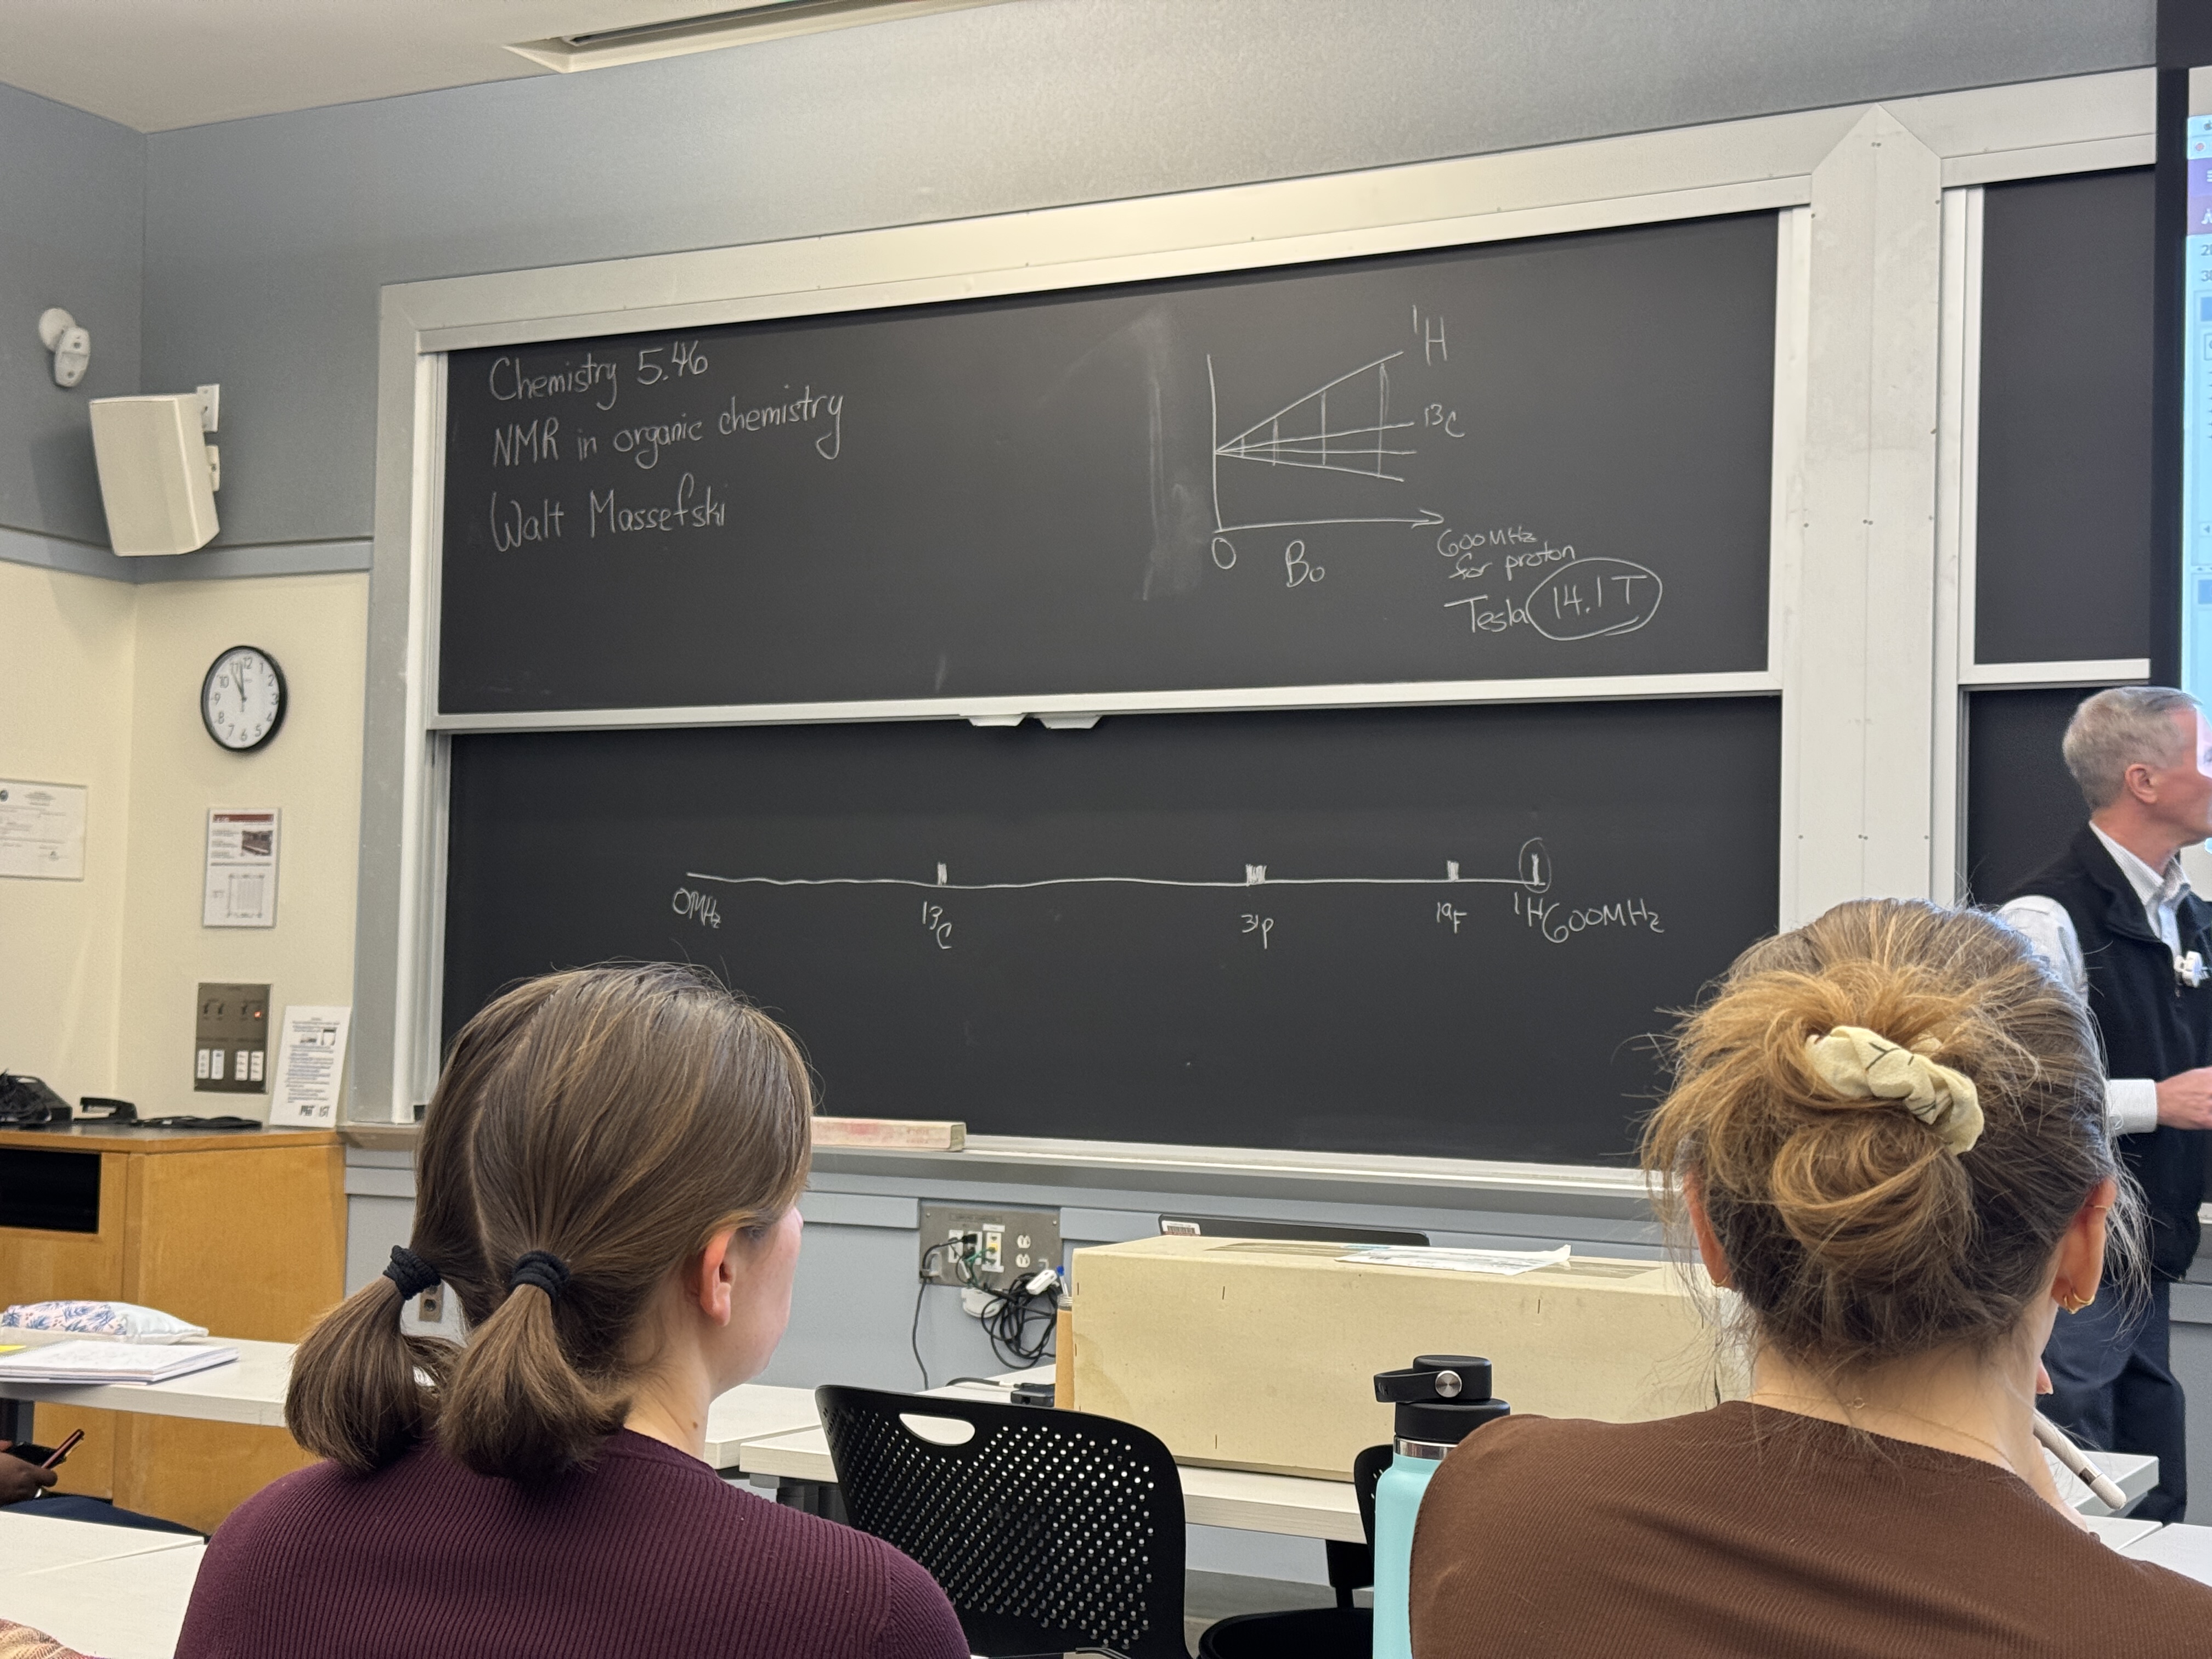 Chemistry 5.46
NMR in organic chemistry
Walt Massefski
¹H
¹³C
0
B₀
600MHz
for proton
Tesla 14.1T
0MHz
¹³C
³¹P
¹⁹F
¹H 600MHz
12
1
2
3
4
5
6
7
8
9
10
11